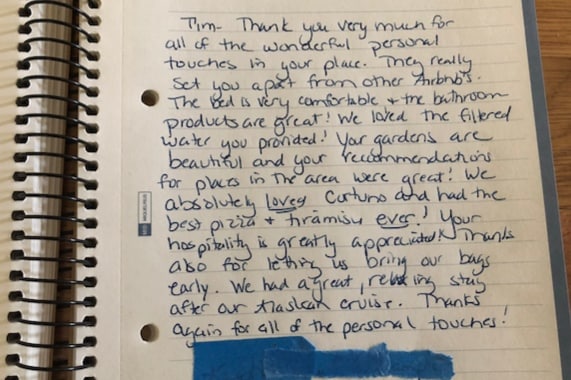 Tim- Thank you very much for
all of the wonderful personal
touches in your place. They really
set you apart from other Airbnb's.
The bed is very comfortable + the bathroom
products are great! We loved the filtered
water you provided! Your gardens are
beautiful and your recommendations
for places in the area were great! We
absolutely loved and had the
best pizza + tiramisu ever! Your
hospitality is greatly appreciated! Thanks
also for letting us bring our bags
early. We had a great, relaxing stay
after our Alaskan cruise. Thanks
again for all of the personal touches!